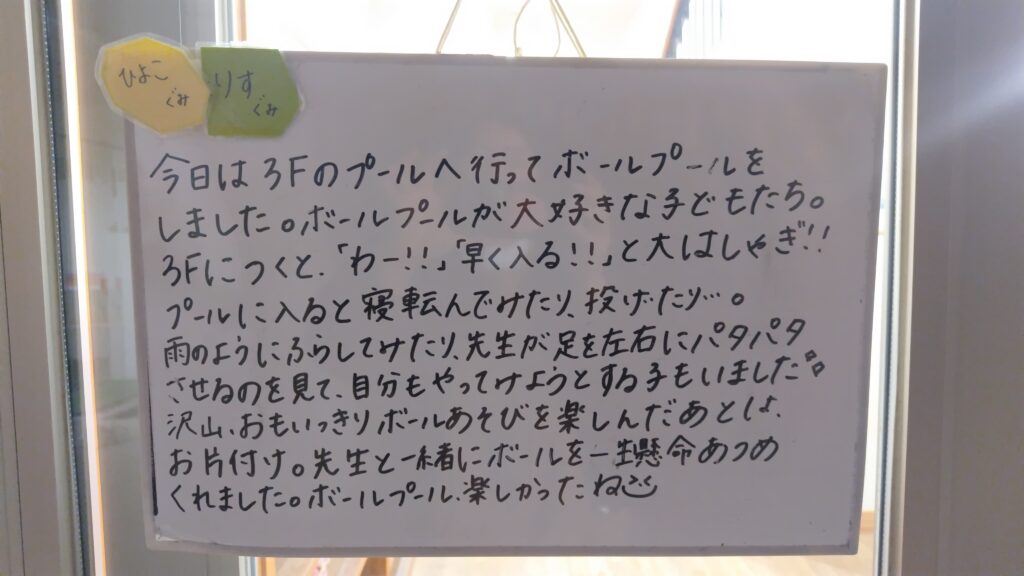 ひよこ
ぐみ
りす
ぐみ
今日は3Fのプールへ行ってボールプールを
しました。ボールプールが大好きな子どもたち。
3Fにつくと、「わー!!」「早く入る!!」と大はしゃぎ!!
プールに入ると寝転んでみたり、投げたり…。
雨のようにふらしてみたり、先生が足を左右にパタパタ
させるのを見て、自分もやってみようとする子もいました。
沢山、おもいっきりボールあそびを楽しんだあとは、
お片付け。先生と一緒にボールを一生懸命あつめ
くれました。ボールプール、楽しかったね